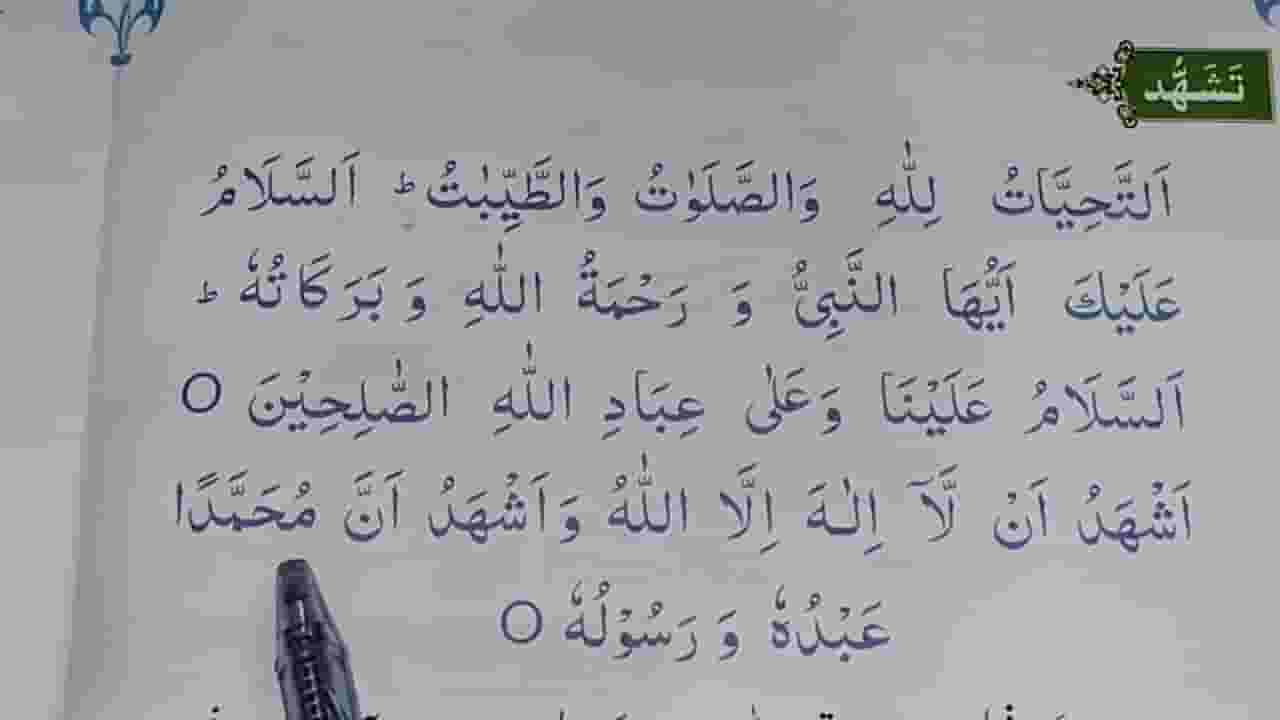 تَشَهُّد
اَلتَّحِيَّاتُ لِلّٰهِ وَالصَّلَوٰتُ وَالطَّيِّبٰتُ ؕ اَلسَّلَامُ
عَلَيْكَ اَيُّهَا النَّبِىُّ وَ رَحْمَةُ اللّٰهِ وَ بَرَكَاتُهٗ ؕ
اَلسَّلَامُ عَلَيْنَا وَعَلٰى عِبَادِ اللّٰهِ الصّٰلِحِيْنَ O
اَشْهَدُ اَنْ لَّآ اِلٰهَ اِلَّا اللّٰهُ وَاَشْهَدُ اَنَّ مُحَمَّدًا
عَبْدُهٗ وَ رَسُوْلُهٗ O